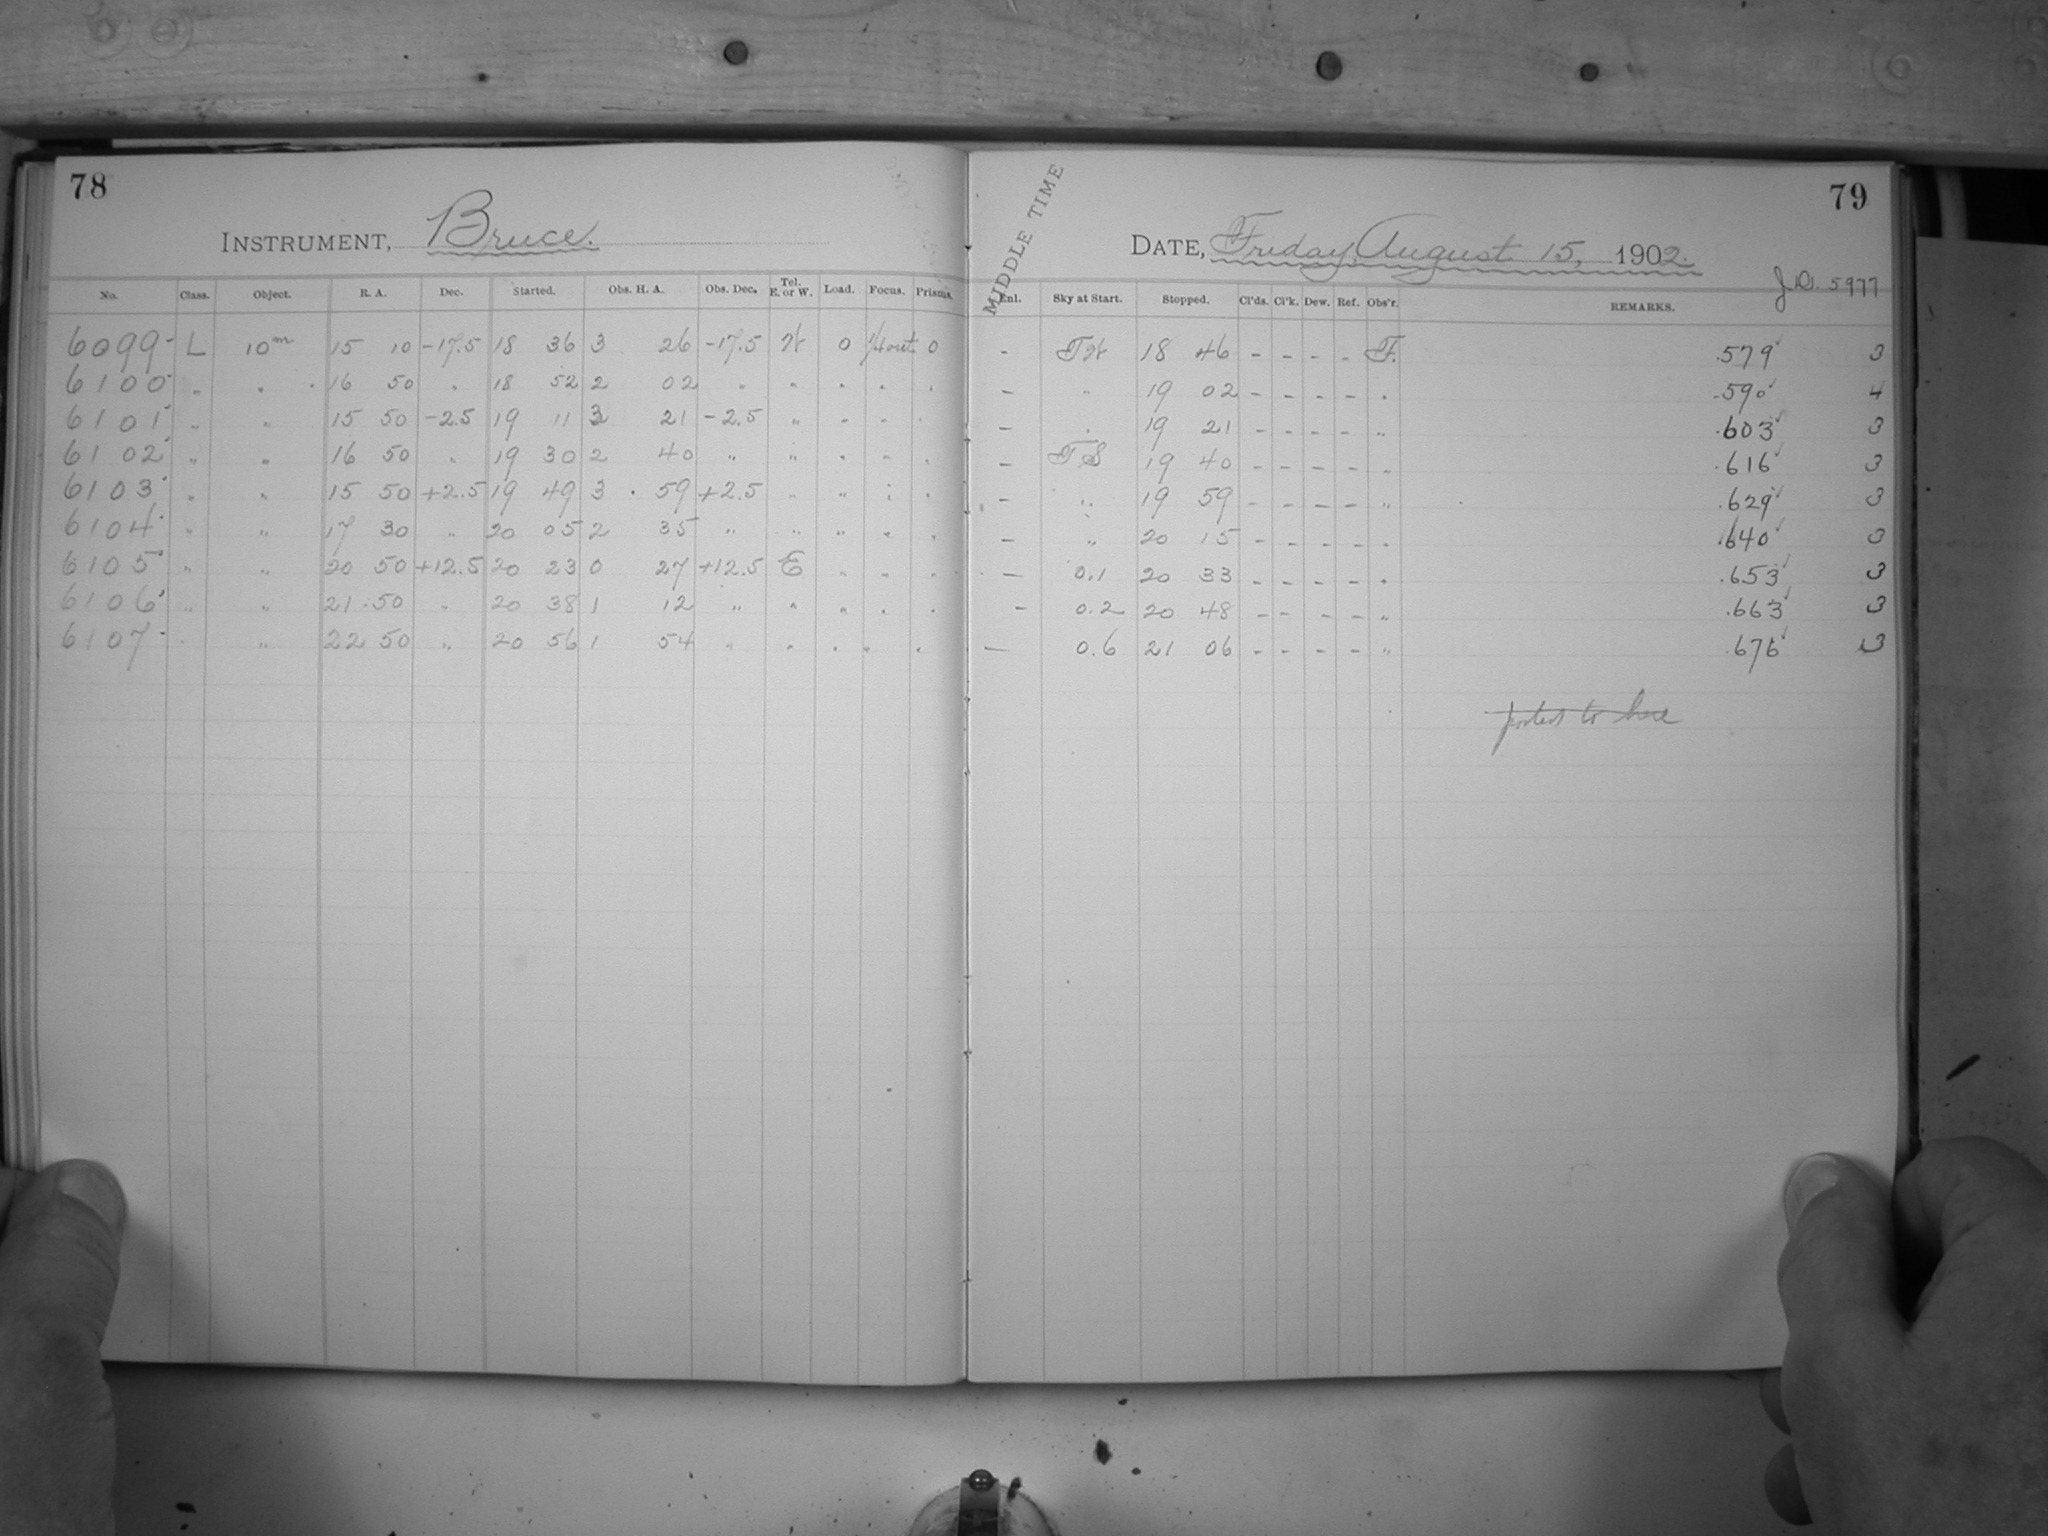 78
INSTRUMENT, Bruce.
No. Class. Object. R. A. Dec. Started. Obs. H. A. Obs. Dec. Tel. E. or W. Load. Focus. Prisms.
6099 L 10m 15 10 -17.5 18 36 3 26 -17.5 W 0 0
6100 " " 16 50 " 18 52 2 02 " " " " "
6101 " " 15 50 -2.5 19 11 3 21 -2.5 " " " "
6102 " " 16 50 " 19 30 2 40 " " " " "
6103 " " 15 50 +2.5 19 49 3 59 +2.5 " " " "
6104 " " 17 30 " 20 05 2 35 " " " " "
6105 " " 20 50 +12.5 20 23 0 27 +12.5 E " " "
6106 " " 21 50 " 20 38 1 12 " " " " "
6107 " " 22 50 " 20 56 1 54 " " " " "
79
MIDDLE TIME
DATE, Friday, August 15, 1902.
J.D. 5977
Enl. Sky at Start. Stopped. Cl'ds. Cl'k. Dew. Ref. Obs'r. REMARKS.
- 18 46 - - - - F. .579 3
- " 19 02 - - - - " .590 4
- " 19 21 - - - - " .603 3
- TS 19 40 - - - - " .616 3
- " 19 59 - - - - " .629 3
- " 20 15 - - - - " .640 3
- 0.1 20 33 - - - - " .653 3
- 0.2 20 48 - - - - " .663 3
- 0.6 21 06 - - - - " .676 3
to here